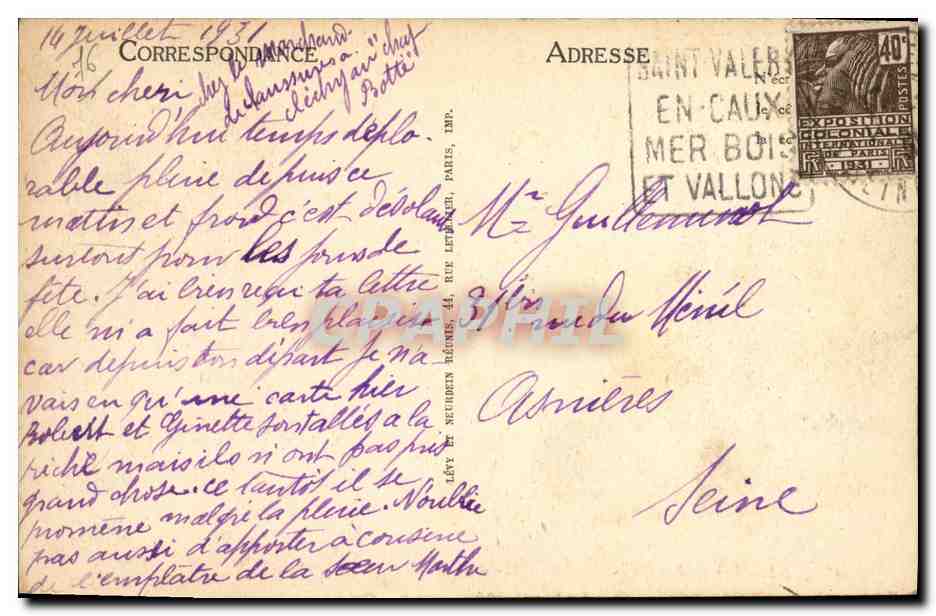 14 juillet 1931
CORRESPONDANCE
chez le marchand
de chaussures à
clichy au "chat
Botté"
Mon cheri
Aujourd'hui temps deplo-
rable pleine depuis ce
matin et froid c'est désolant
surtout pour les jours de
fête. J'ai bien reçu ta lettre
elle m'a fait bien plaisir
car depuis ton départ Je n'a
vais eu qu'une carte hier
Robert et Ginette sont allés a la
pêche mais ils n'ont pas pris
grand chose. ce tantôt il se
promène malgré la pleine. N'oublie
pas aussi d'apporter à cousine
de l'emplâtre de la sœur Marthe
LÉVY ET NEURDEIN RÉUNIS, 44, RUE LETELLIER, PARIS, IMP.
ADRESSE
SAINT VALERY
EN-CAUX
MER BOIS
ET VALLONS
40c
POSTES
EXPOSITION
COLONIALE
INTERNATIONALE
DE PARIS
1931
Mr
31 bis rue du Ménil
Asnières
Seine
CPAPHIL